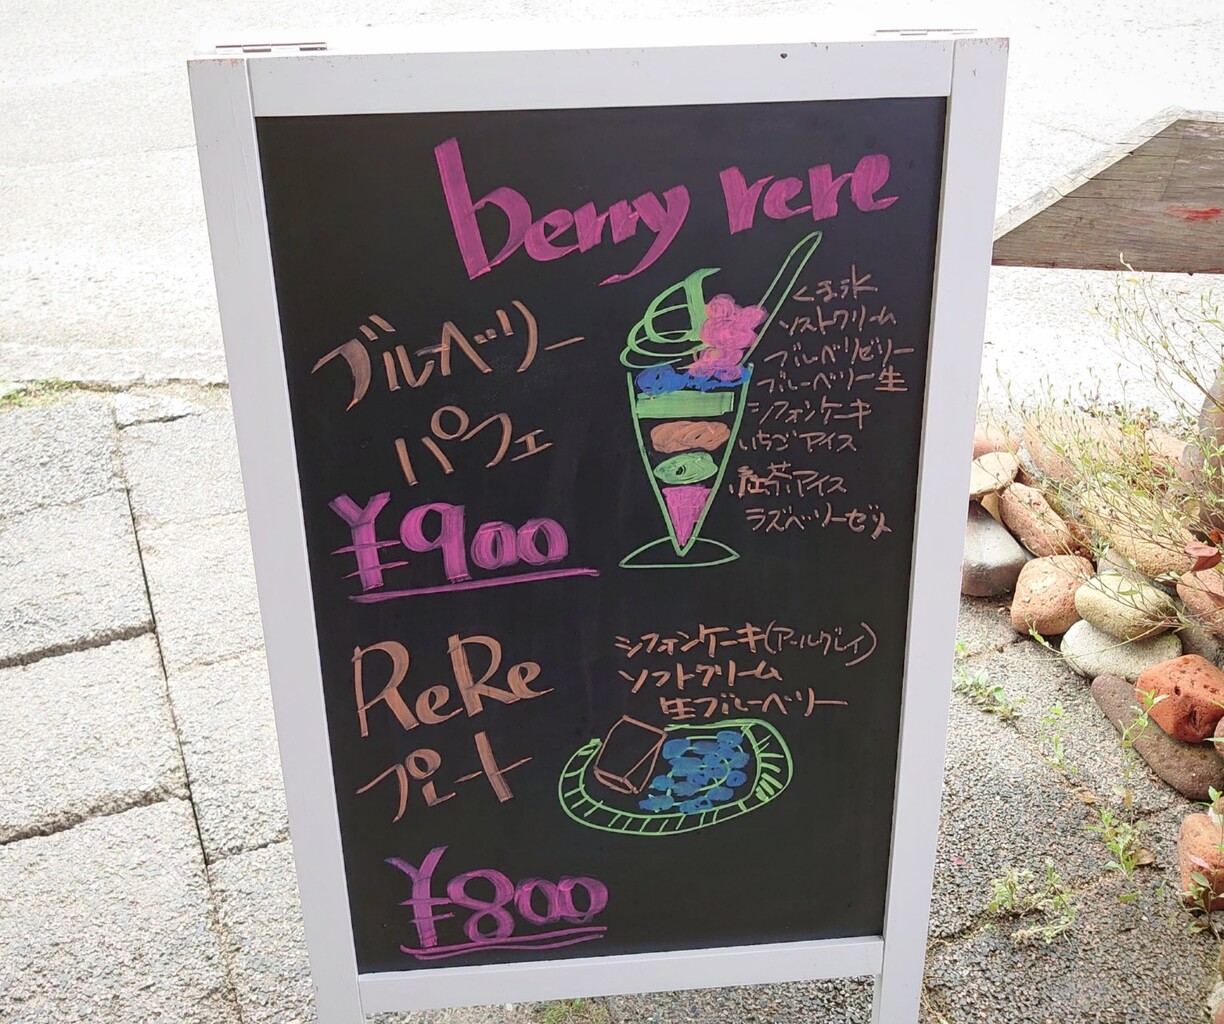 berry rere
ブルーベリー
パフェ
¥900
くま氷
ソストクリーム
ブルーベリゼリー
ブルーベリー生
シフォンケーキ
いちごアイス
紅茶アイス
ラズベリーゼリ
ReRe
プレート
¥800
シフォンケーキ(アールグレイ)
ソフトクリーム
生ブルーベリー